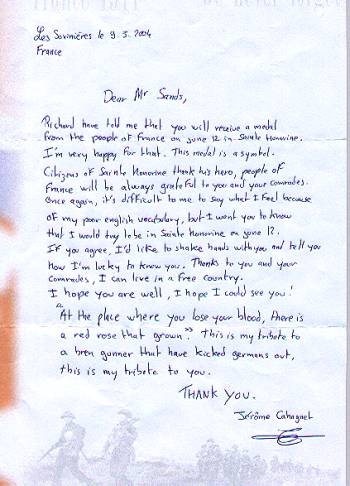 Les Souinières le 9.3.2004
France
Dear Mr Sands,
Richard have told me that you will receive a medal
from the people of France on june 12 in Sainte Honorine.
I'm very happy for that. This medal is a symbol.
Citizens of Sainte Honorine thank his hero, people of
France will be always grateful to you and your comrades.
Once again, it's difficult to me to say what I feel because
of my poor english vocabulary, but I want you to know
that I would try to be in Sainte Honorine on june 12.
If you agree, I'd like to shake hands with you and tell you
how I'm lucky to know you. Thanks to you and your
comrades, I can live in a free country.
I hope you are well, I hope I could see you!
"At the place where you lose your blood, there is
a red rose that grown". This is my tribute to
a bren gunner that have kicked germans out,
this is my tribute to you.
THANK YOU.
Jérôme Cahagnet